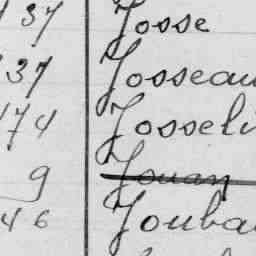 37 Josse
37 Josseau
174 Josseli
9 Jouan
46 Jouba